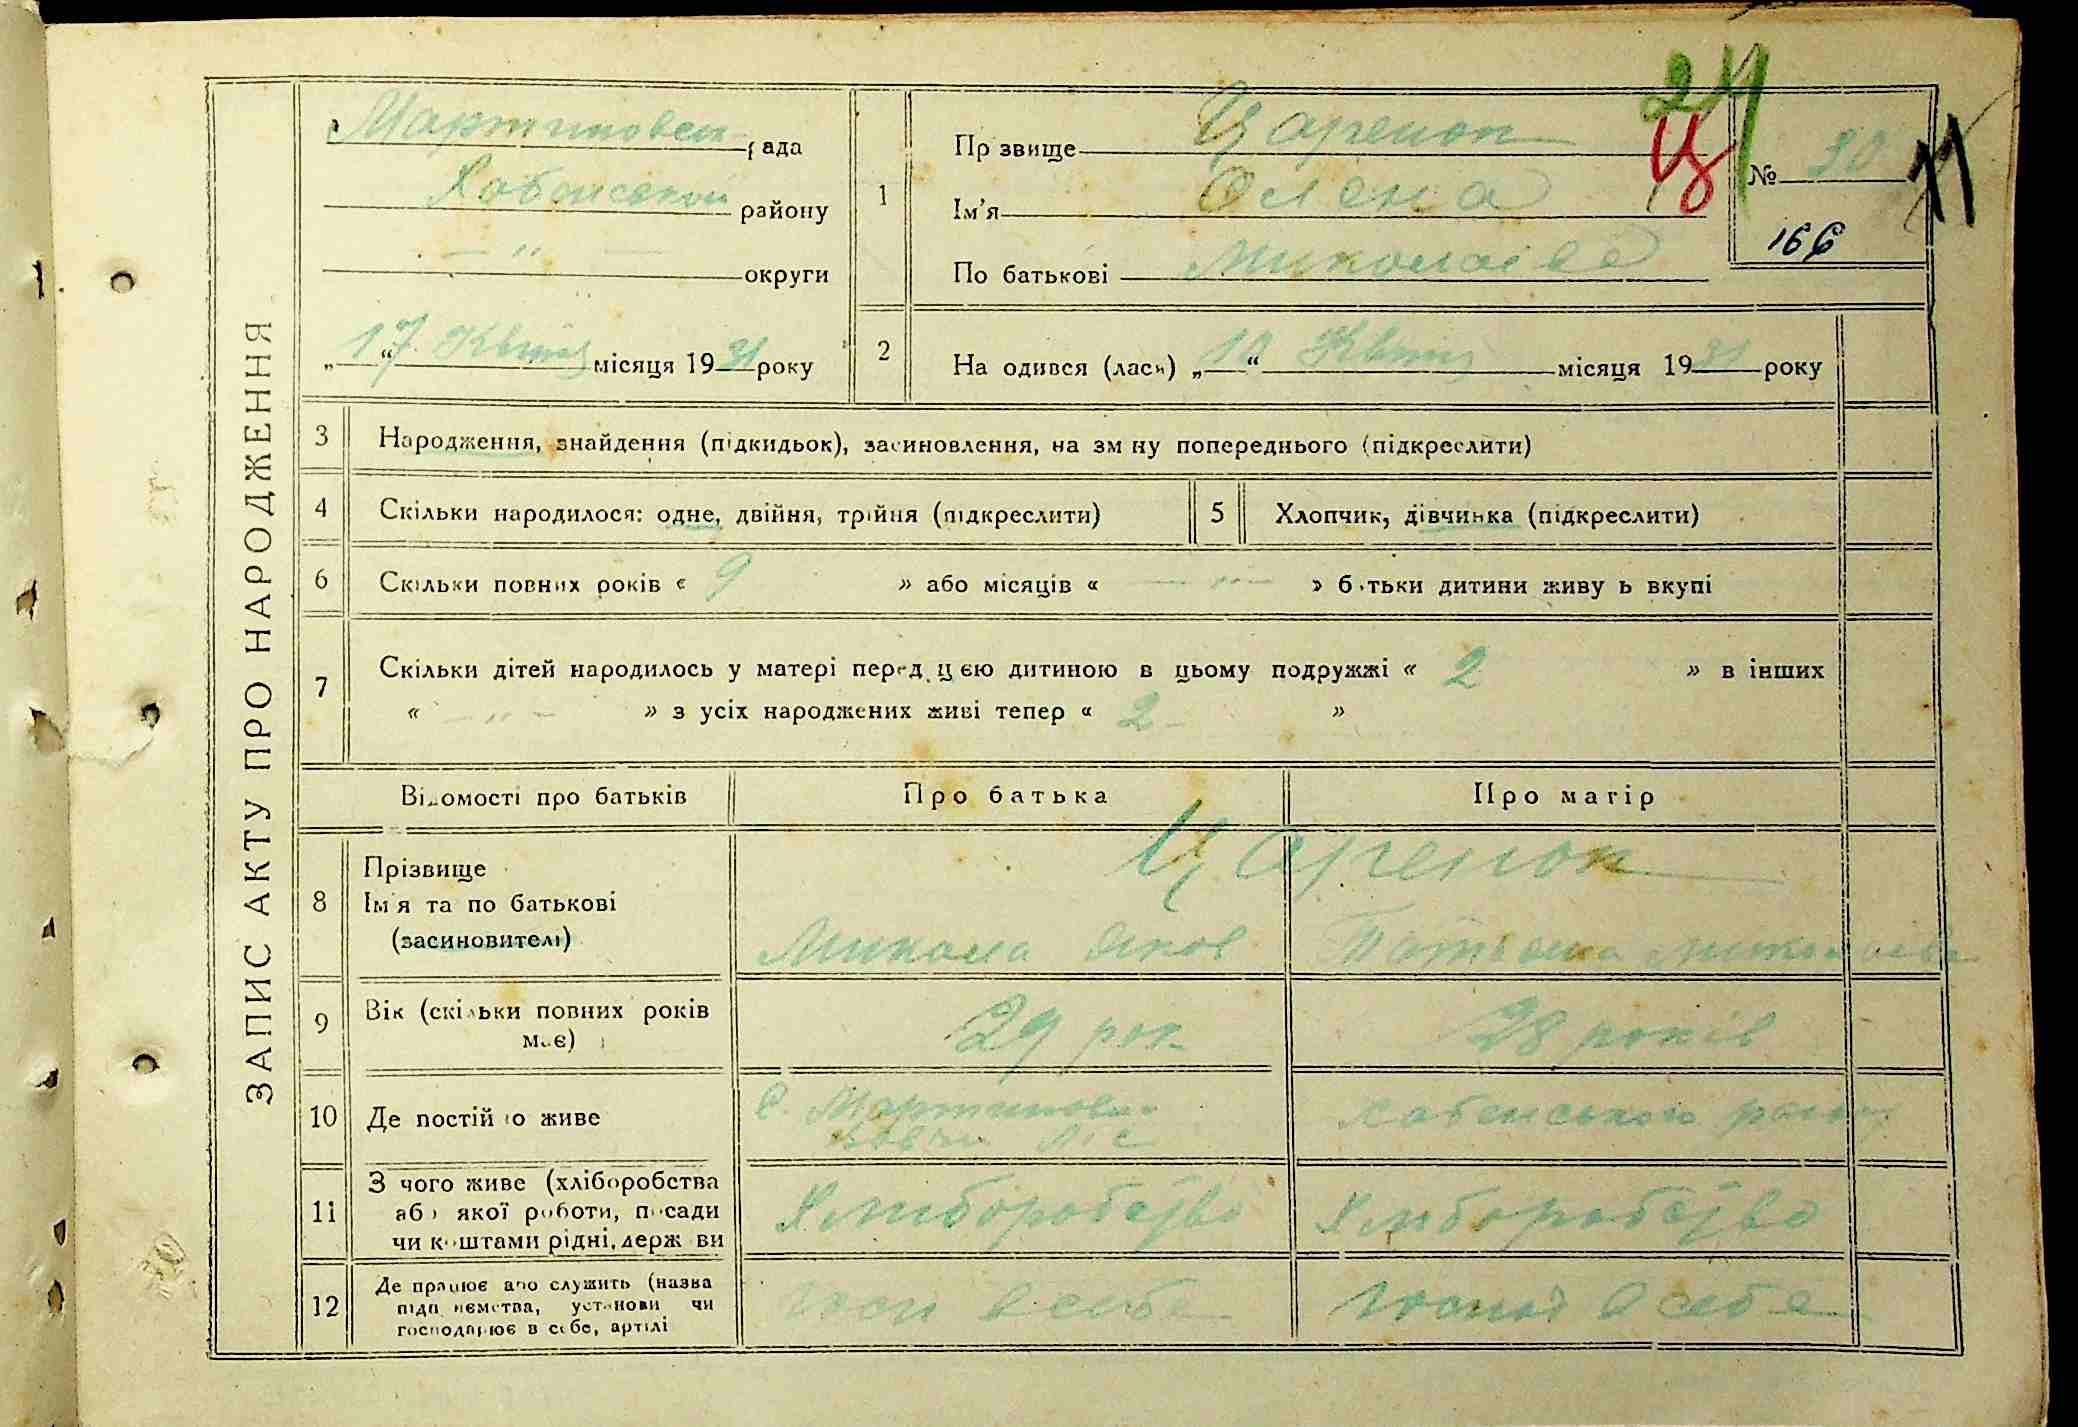 ЗАПИС АКТУ ПРО НАРОДЖЕННЯ
Мартиновсь рада
Хабенської району
— " — округи
„17“ Квітня місяця 1931 року
1
Прізвище Царенок
Ім'я Олена
По батькові Миколаєва
24
Ц
№ 30
166
11
2
На одився (лася) „10“ Квітня місяця 1931 року
3 Народження, знайдення (підкидьок), засиновлення, на зм ну попереднього (підкреслити)
4 Скільки народилося: одне, двійня, трійня (підкреслити)
5 Хлопчик, дівчинка (підкреслити)
6 Скільки повних років « 9 » або місяців « — " — » б тьки дитини живу ь вкупі
7 Скільки дітей народилось у матері перед цією дитиною в цьому подружжі « 2 » в інших
« — " — » з усіх народжених живі тепер « 2 »
Відомості про батьків Про батька Про матір
8 Прізвище
Ім'я та по батькові
(засиновителі)
Царенок
Микола Яков Татьяна Миколаєва
9 Вік (скільки повних років
має)
29 рок 28 років
10 Де постійно живе
с. Мартинов
Ліс
Хабенського району
11 З чого живе (хліборобства
або якої роботи, посади
чи коштами рідні, держ ви
Хліборобство Хліборобство
12 Де працює або служить (назва
підп иємства, установи чи
господарює в себе, артілі
госп в себе господ в себе